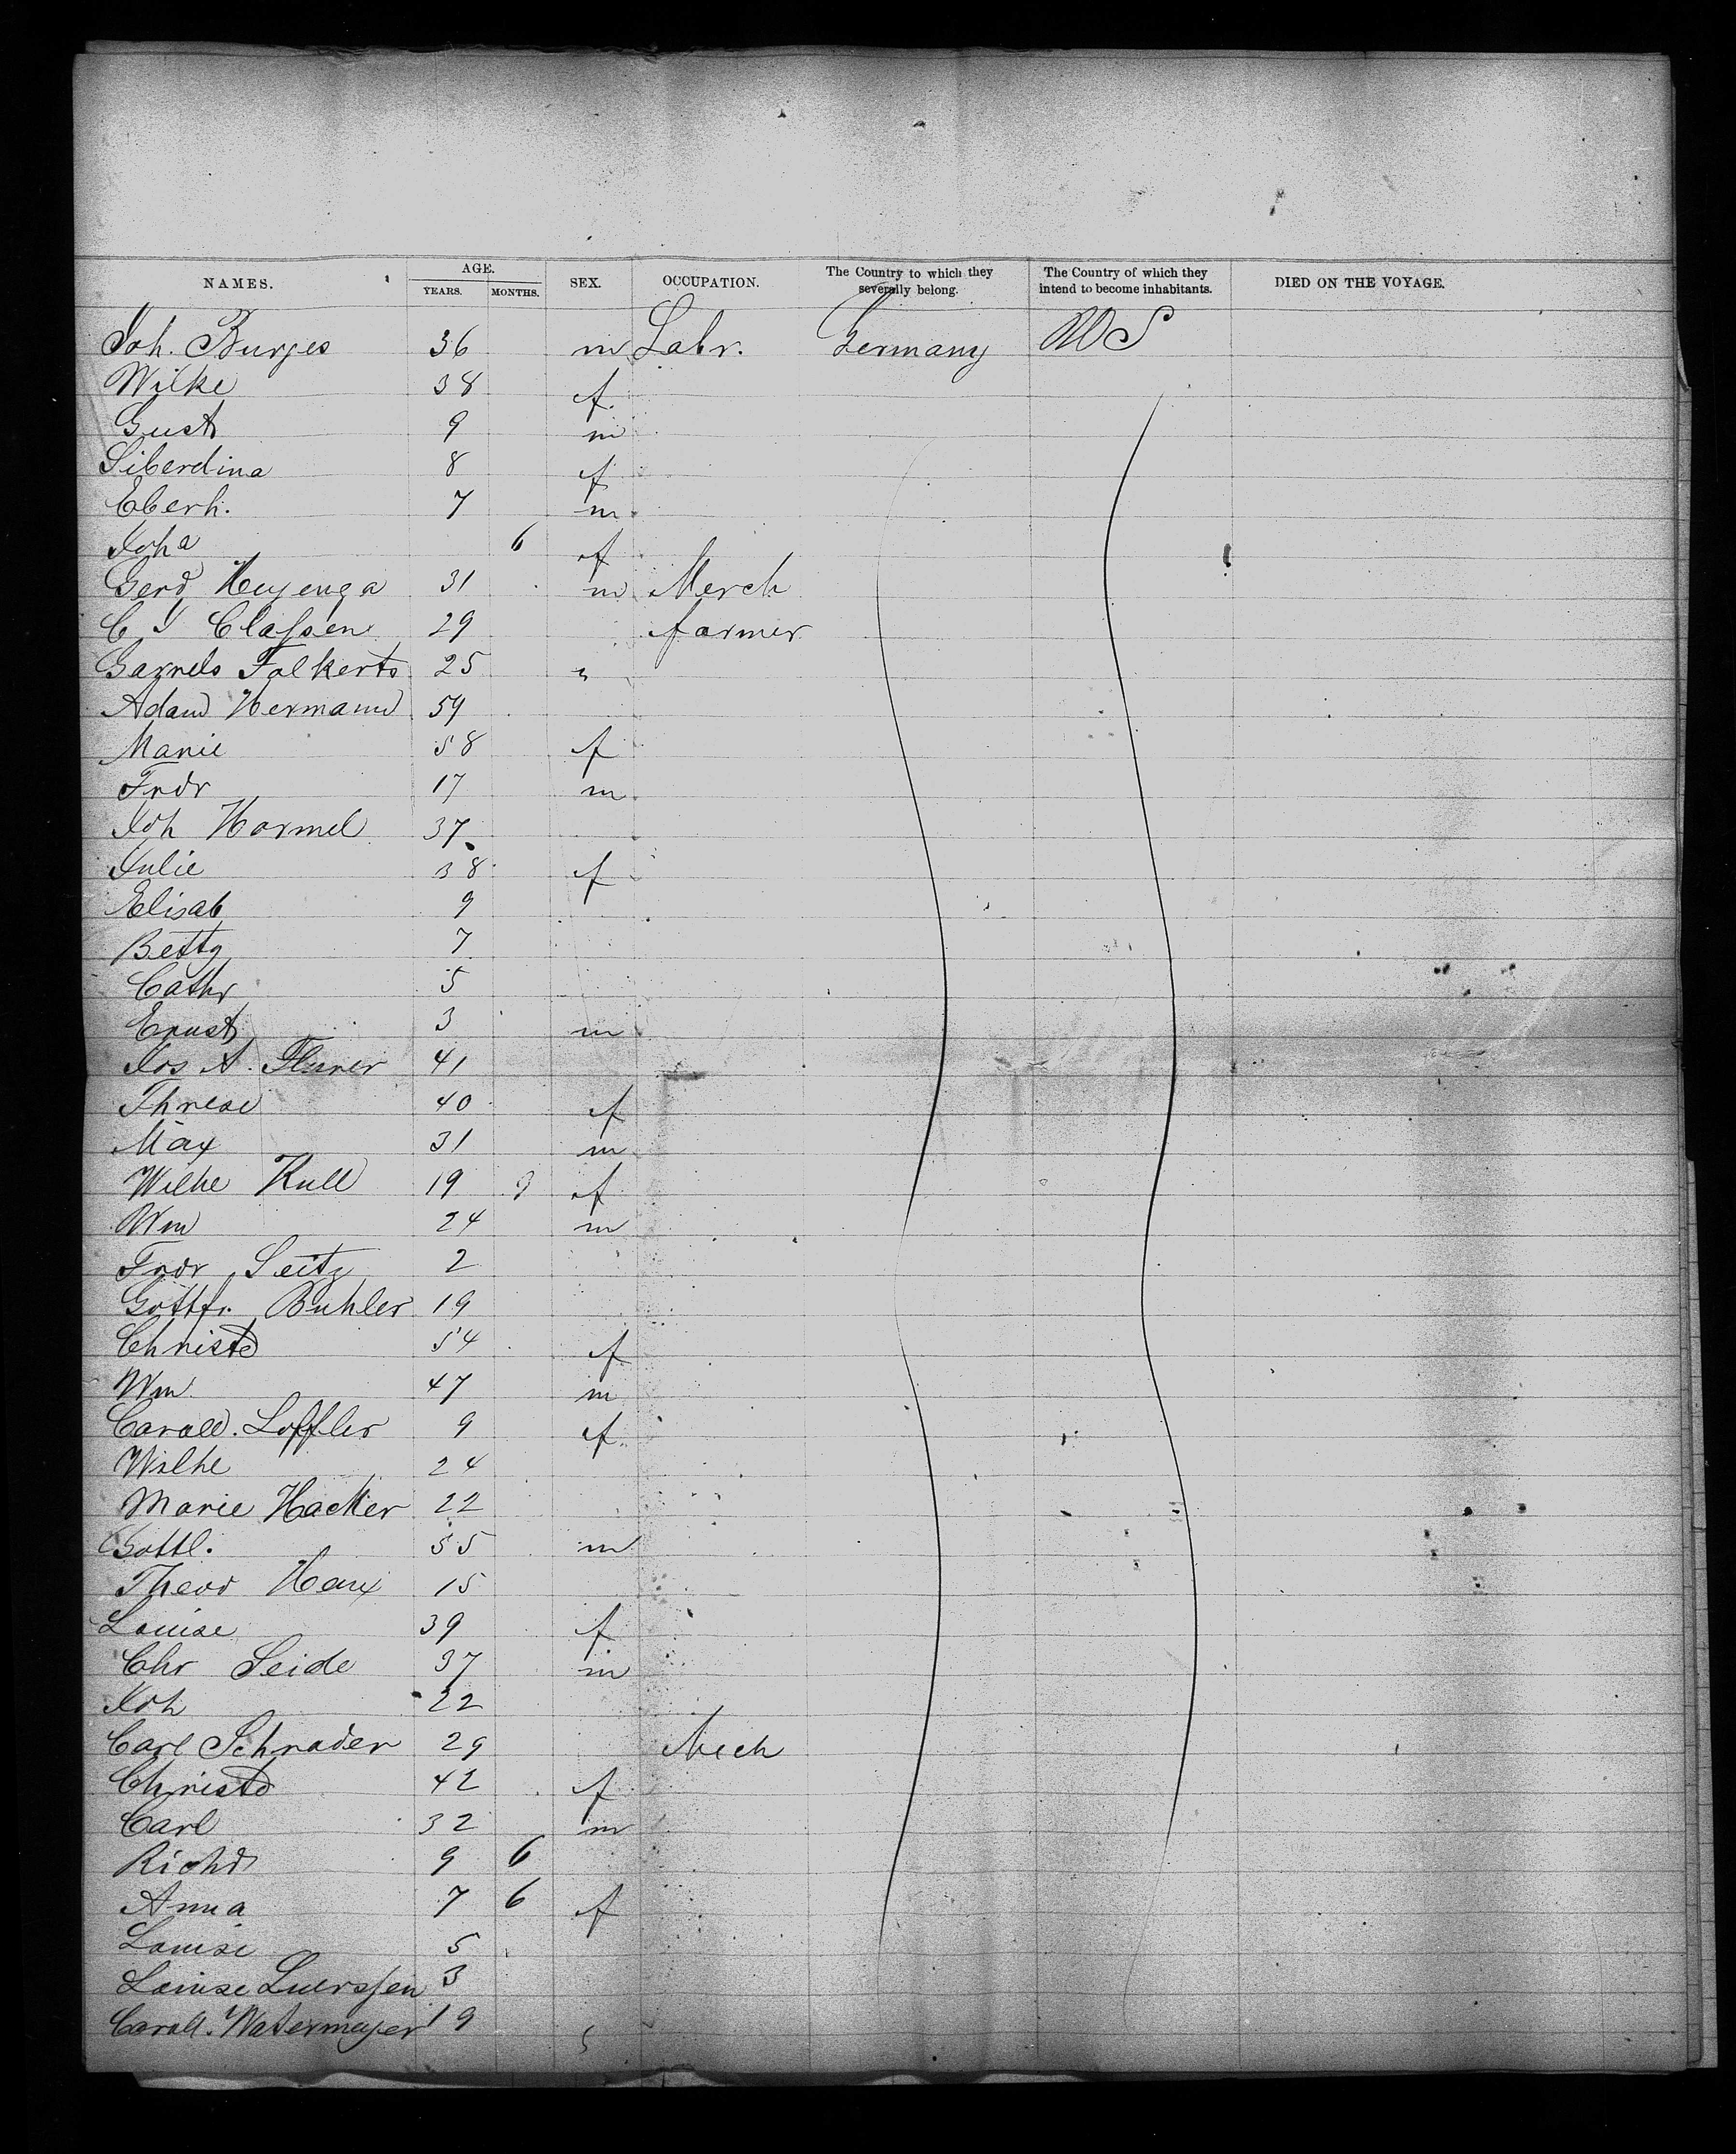 NAMES. AGE. YEARS. MONTHS. SEX. OCCUPATION. The Country to which they severally belong. The Country of which they intend to become inhabitants. DIED ON THE VOYAGE.
Joh. Burjes 36 m Labr. Germany US
Wilke 38 f.
Gust 9 m
Siberdina 8 f
Eberh. 7 m
Joha 6 f
Gerd Heyenga 31 m Merch
C J Classen 29 farmer
Garrels Folkerts 25 "
Adam Hermann 59
Marie 58 f
Frdr 17 m
Joh Hormel 37
Julie 38 f
Elisab 9
Betty 7
Cathr 5
Ernst 3 m
Jos A. 41
Threse 40 f
Max 31 m
Wilhe Kull 19 f
Wm 24 m
Frdr Seitz 2
Gottfr. Buhler 19
Christe 54 f
Wm 47 m
Caroll. Loffler 9 f
Wilhe 24
Marie Hacker 22
Gottl. 55 m
Theod 15
Louise 39 f
Chr Seide 37 m
Joh 22
Carl Schrader 29 Mech
Christe 42 f
Carl 32 m
Richd 9 6
Anna 7 6 f
Louise 5
Louise Luerssen 3
Caroll. Watermeyer 19